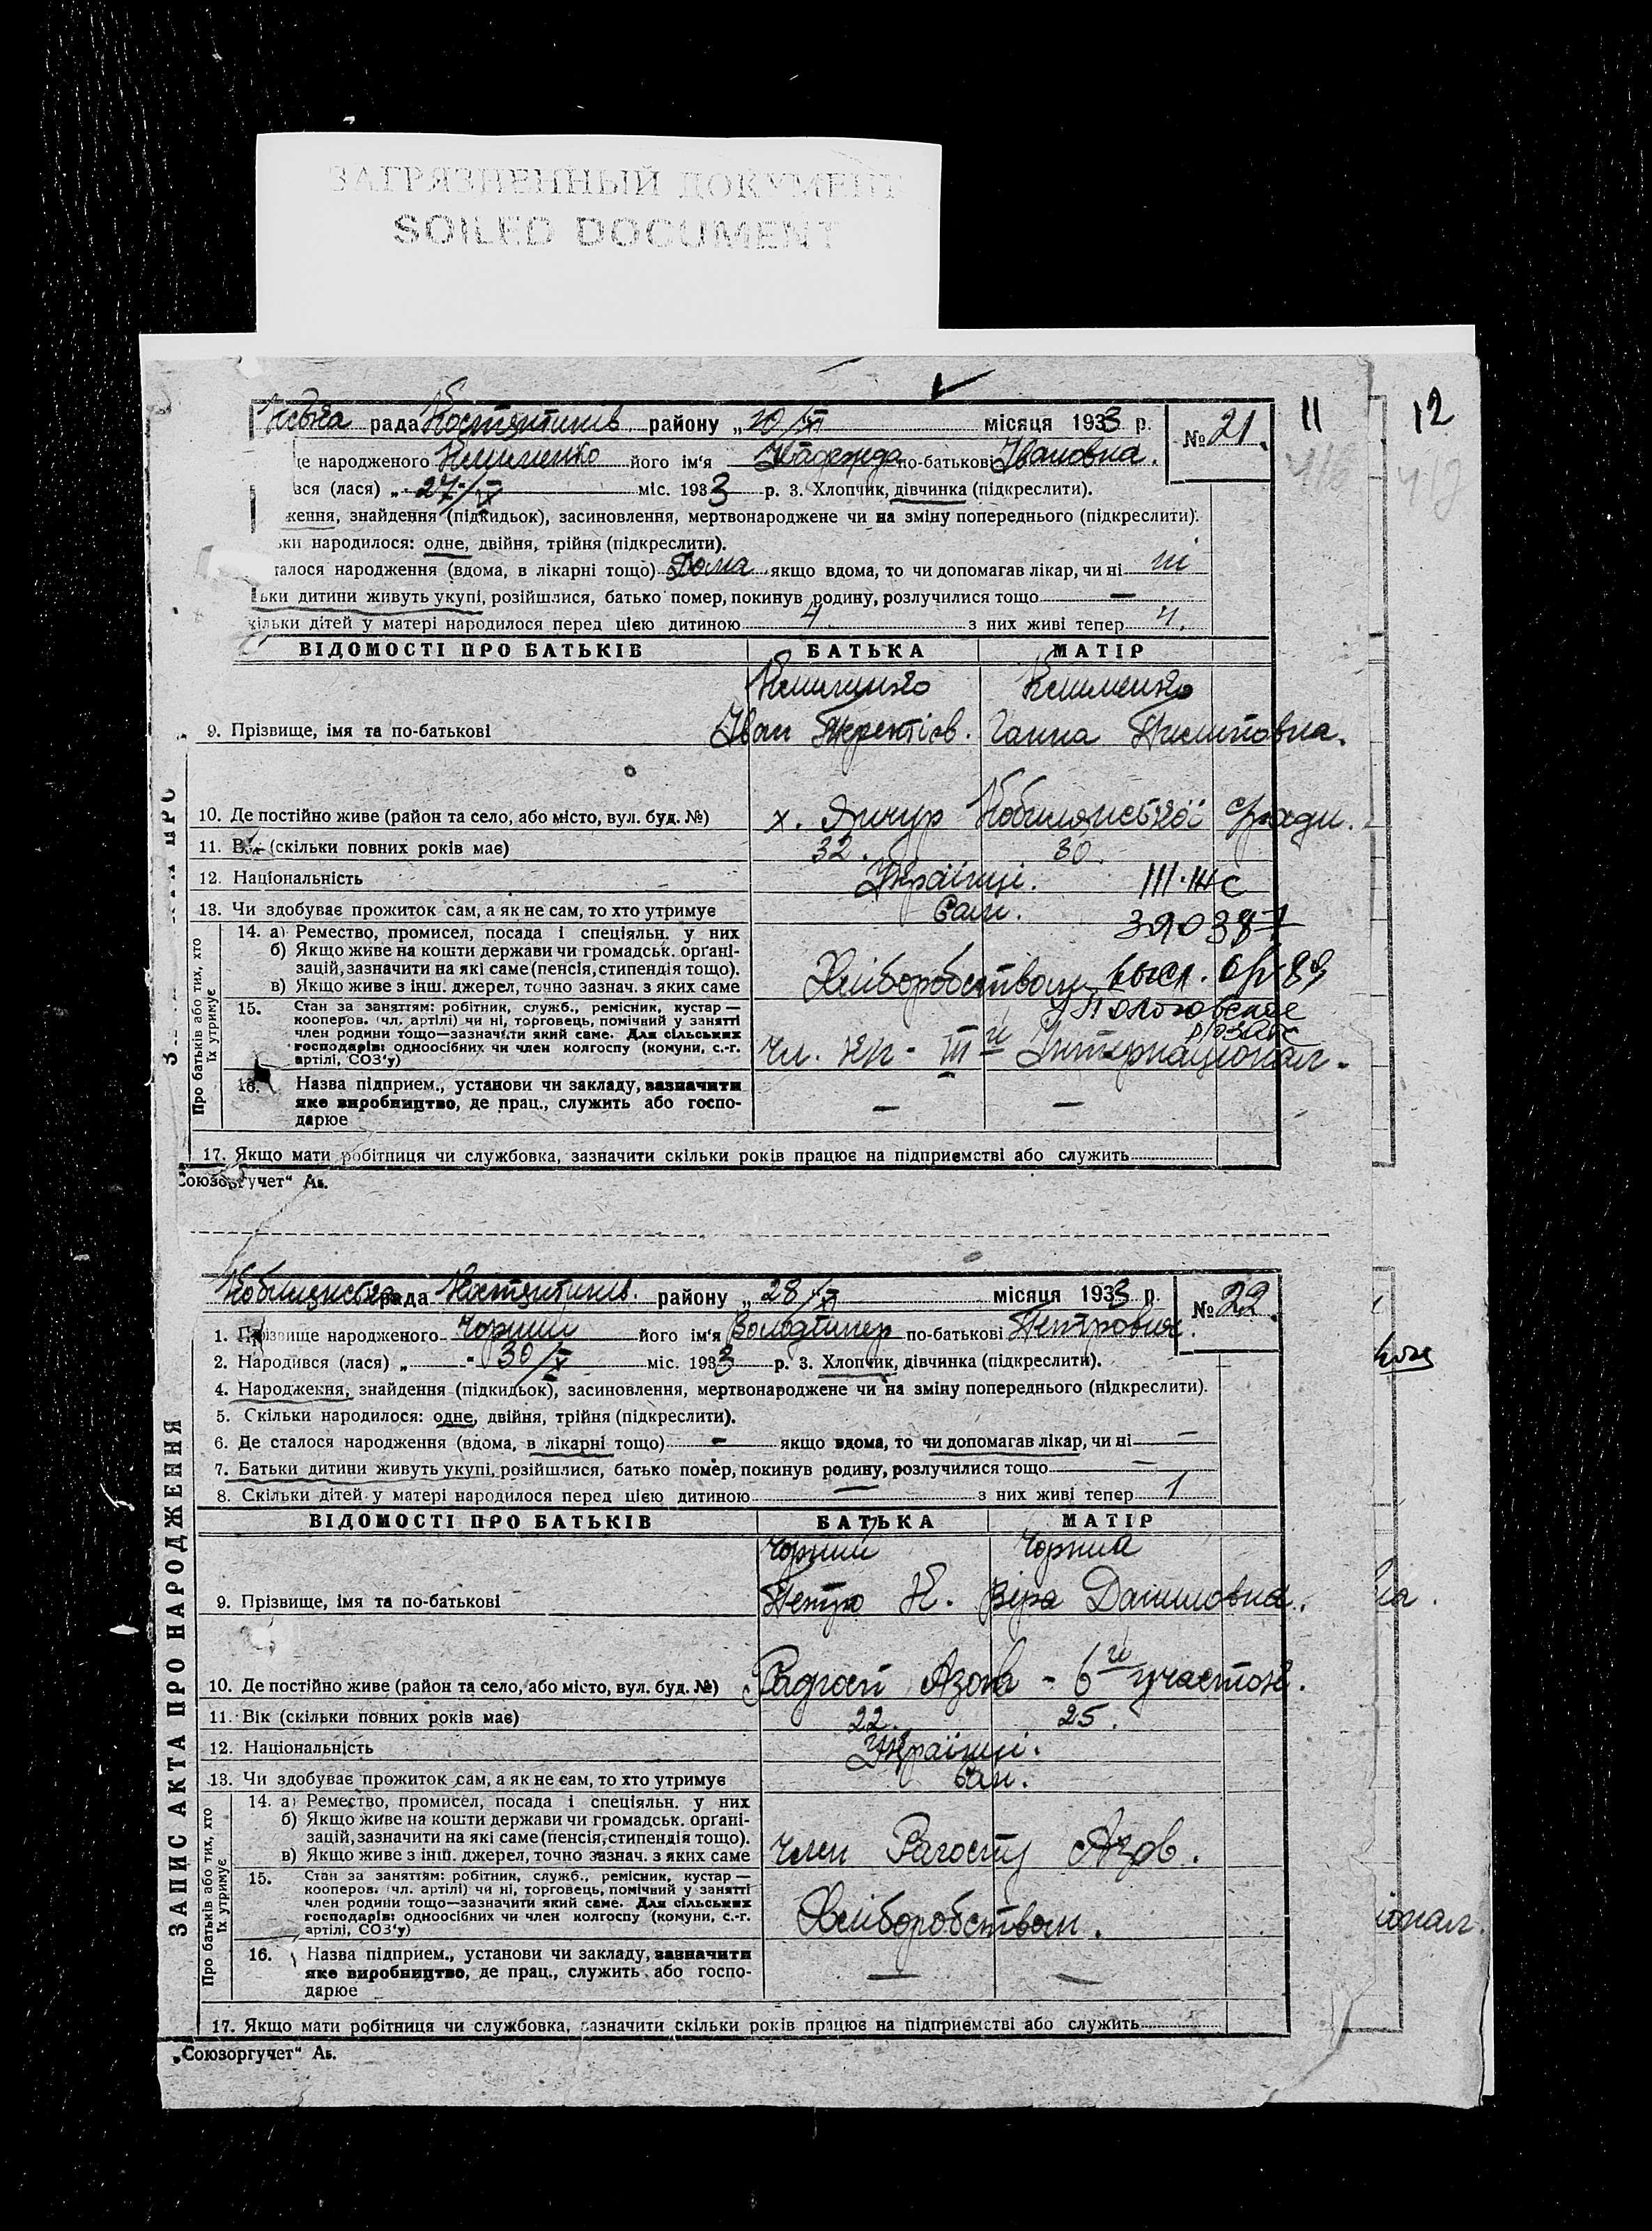 ЗАГРЯЗНЕННЫЙ ДОКУМЕНТ
SOILED DOCUMENT
11 12
рада Костянтинів. району „ 20/XI місяця 1933 р. № 21.
це народженого Клименко його ім'я Надежда по-батькові Івановна.
вся (лася) „ 27/IX міс. 1933 р. 3. Хлопчик, дівчинка (підкреслити).
ження, знайдення (підкидьок), засиновлення, мертвонароджене чи на зміну попереднього (підкреслити).
ьки народилося: одне, двійня, трійня (підкреслити).
талося народження (вдома, в лікарні тощо) Дома якщо вдома, то чи допомагав лікар, чи ні ні
ьки дитини живуть укупі, розійшлися, батько помер, покинув родину, розлучилися тощо —
кільки дітей у матері народилося перед цією дитиною 4 з них живі тепер 4.
ВІДОМОСТІ ПРО БАТЬКІВ БАТЬКА МАТІР
Клименко Клименко
9. Прізвище, імя та по-батькові Іван Терентіов. Ганна Пилиповна.
10. Де постійно живе (район та село, або місто, вул. буд. №) х. Янчур с/ради.
11. Вік (скільки повних років має) 32. 30.
12. Національність Українці. III-ЖС
13. Чи здобуває прожиток сам, а як не сам, то хто утримує Сами. 390387
Про батьків або тих, хто їх утримує
14. а) Ремество, промисел, посада і спеціяльн. у них
б) Якщо живе на кошти держави чи громадськ. орґані-
зацій, зазначити на які саме (пенсія, стипендія тощо).
в) Якщо живе з інш. джерел, точно зазнач. з яких саме Хліборобством
Пологовское
15. Стан за заняттям: робітник, служб., ремісник, кустар—
кооперов. (чл. артілі) чи ні, торговець, помічний у занятті
член родини тощо—зазначити який саме. Для сільських
господарів: одноосібних чи член колгоспу (комуни, с.-г.
артілі, СОЗ'у) Чл. к/г - III й Інтернаціонал.
16. Назва підприєм., установи чи закладу, зазначити
яке виробництво, де прац., служить або госпо-
дарює — —
17. Якщо мати робітниця чи службовка, зазначити скільки років працює на підприємстві або служить
Союзоргучет“ Аб.
ЗАПИС АКТА ПРО НАРОДЖЕННЯ
рада Костянтинів. району „ 28/XI місяця 1933 р. № 22.
1. Прізвище народженого Чорний його ім'я Володимер по-батькові Петрович.
2. Народився (лася) „ 30/X міс. 1933 р. 3. Хлопчик, дівчинка (підкреслити).
4. Народження, знайдення (підкидьок), засиновлення, мертвонароджене чи на зміну попереднього (підкреслити).
5. Скільки народилося: одне, двійня, трійня (підкреслити).
6. Де сталося народження (вдома, в лікарні тощо) — якщо вдома, то чи допомагав лікар, чи ні —
7. Батьки дитини живуть укупі, розійшлися, батько помер, покинув родину, розлучилися тощо —
8. Скільки дітей у матері народилося перед цією дитиною — з них живі тепер 1
ВІДОМОСТІ ПРО БАТЬКІВ БАТЬКА МАТІР
Чорний Чорна
9. Прізвище, імя та по-батькові Петро К. Віра Даниловна.
10. Де постійно живе (район та село, або місто, вул. буд. №) Радгосп Азов - 6й участок.
11. Вік (скільки повних років має) 22. 25.
12. Національність Українці.
13. Чи здобуває прожиток сам, а як не сам, то хто утримує Сам.
Про батьків або тих, хто їх утримує
14. а) Ремество, промисел, посада і спеціяльн. у них
б) Якщо живе на кошти держави чи громадськ. орґані-
зацій, зазначити на які саме (пенсія, стипендія тощо).
в) Якщо живе з інш. джерел, точно зазнач. з яких саме член Азов.
15. Стан за заняттям: робітник, служб., ремісник, кустар—
кооперов. (чл. артілі) чи ні, торговець, помічний у занятті
член родини тощо—зазначити який саме. Для сільських
господарів: одноосібних чи член колгоспу (комуни, с.-г.
артілі, СОЗ'у) Хліборобством.
16. Назва підприєм., установи чи закладу, зазначити
яке виробництво, де прац., служить або госпо-
дарює — —
17. Якщо мати робітниця чи службовка, зазначити скільки років працює на підприємстві або служить
„Союзоргучет“ Аб.